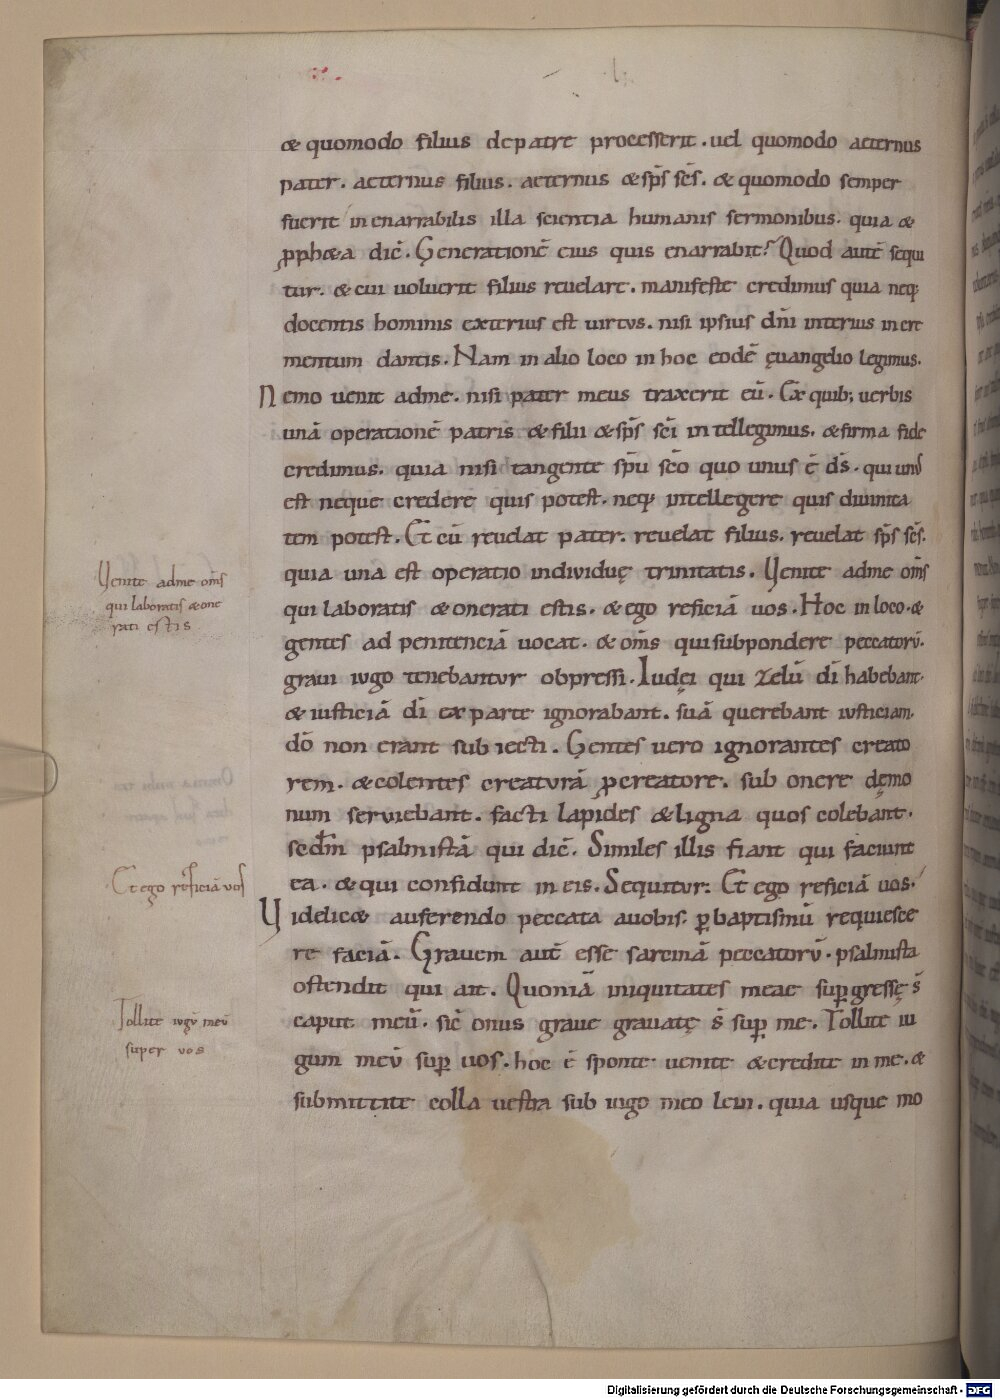 & quomodo filius depatre processerit. uel quomodo aeternus
pater. aeternus filius. aeternus & sp̄s sc̄s. & quomodo semper
fuerit inenarrabilis illa scientia humanis sermonibus. quia &
ꝓph&a dic̄. Generationē eius quis enarrabit? Quod autē sequi
tur. & cui uoluerit filius reuelare. manifeste credimus quia neq;
docentis hominis exterius est uirtus. nisi ipsius dn̄i interius incre
mentum dantis. Nam in alio loco in hoc eodē ęuangelio legimus.
Nemo uenit adme. nisi pater meus traxerit eū. Ex quib; uerbis
unā operationē patris & filii & sp̄s sc̄i intellegimus. & firma fide
credimus. quia nisi tangente sp̄u sc̄o quo unus ē d̄s. qui unus
est neque credere quis potest. neq; intellegere quis diuinita
tem potest. Et cū reuelat pater. reuelat filius. reuelat sp̄s sc̄s.
quia una est operatio indiuiduę trinitatis. Uenite adme om̄s
qui laboratis & onerati estis. & ego reficiā uos. Hoc in loco &
gentes ad penitenciā uocat. & om̄s qui subpondere peccatorū.
graui iugo tenebantur obpressi. Iudęi qui zelū dī habebant.
& iusticiā dī ex parte ignorabant. suā querebant iusticiam.
dō non erant subiecti. Gentes uero ignorantes creato
rem. & colentes creaturā ꝓ creatore. sub onere dęmo
num seruiebant. facti lapides & ligna quos colebant.
secdm̄ psalmistā qui dic̄. Similes illis fiant qui faciunt
ea. & qui confidunt in eis. Sequitur. Et ego reficiā uos.
Uidelic& auferendo peccata auobis. ꝑ baptismū requiesce
re faciā. Grauem autē esse sarcinā peccatorū. psalmista
ostendit qui ait. Quoniā iniquitates meae suꝑgressę s̄
caput meū. sic̄ onus graue grauatę s̄ suꝑ me. Tollite iu
gum meū suꝑ uos. hoc ē sponte uenite & credite in me. &
submittite colla uestra sub iugo meo leui. quia usque mo
Uenite adme om̄s
qui laboratis & one
rati estis
Et ego reficiā uos
Tollite iugū meū
super uos
Digitalisierung gefördert durch die Deutsche Forschungsgemeinschaft - DFG